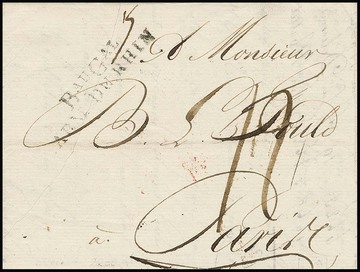 Bau Gal
Arm. Du Rhin
A Monsieur
B. L. Fould
à Paris